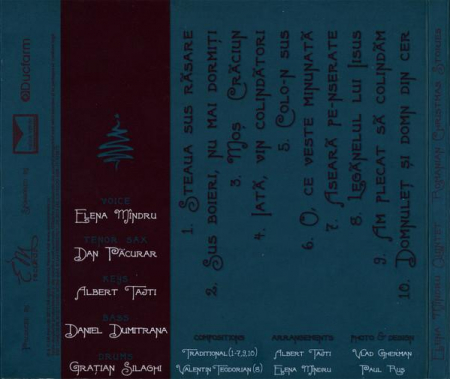 VOICE
Elena Mîndru
TENOR SAX
Dan Păcurar
KEYS
Albert Tajti
BASS
Daniel Dumitriana
DRUMS
Grațian Silaghi
1. Steaua sus răsare
2. Sus boieri, nu mai dormiți
3. Moș Crăciun
4. Iată, vin colindători
5. Colo-n sus
6. O, ce veste minunată
7. Aseară pe-nserate
8. Legănelul lui Iisus
9. Am plecat să colindăm
10. Domnuleț și domn din cer
COMPOSITIONS
Traditional (1-7,9,10)
Valentin Teodorian (8)
ARRANGEMENTS
Albert Tajti
Elena Mîndru
PHOTO & DESIGN
Vlad Gherman
Paul Pus
Elena Mîndru Quartet - Romanian Christmas Stories